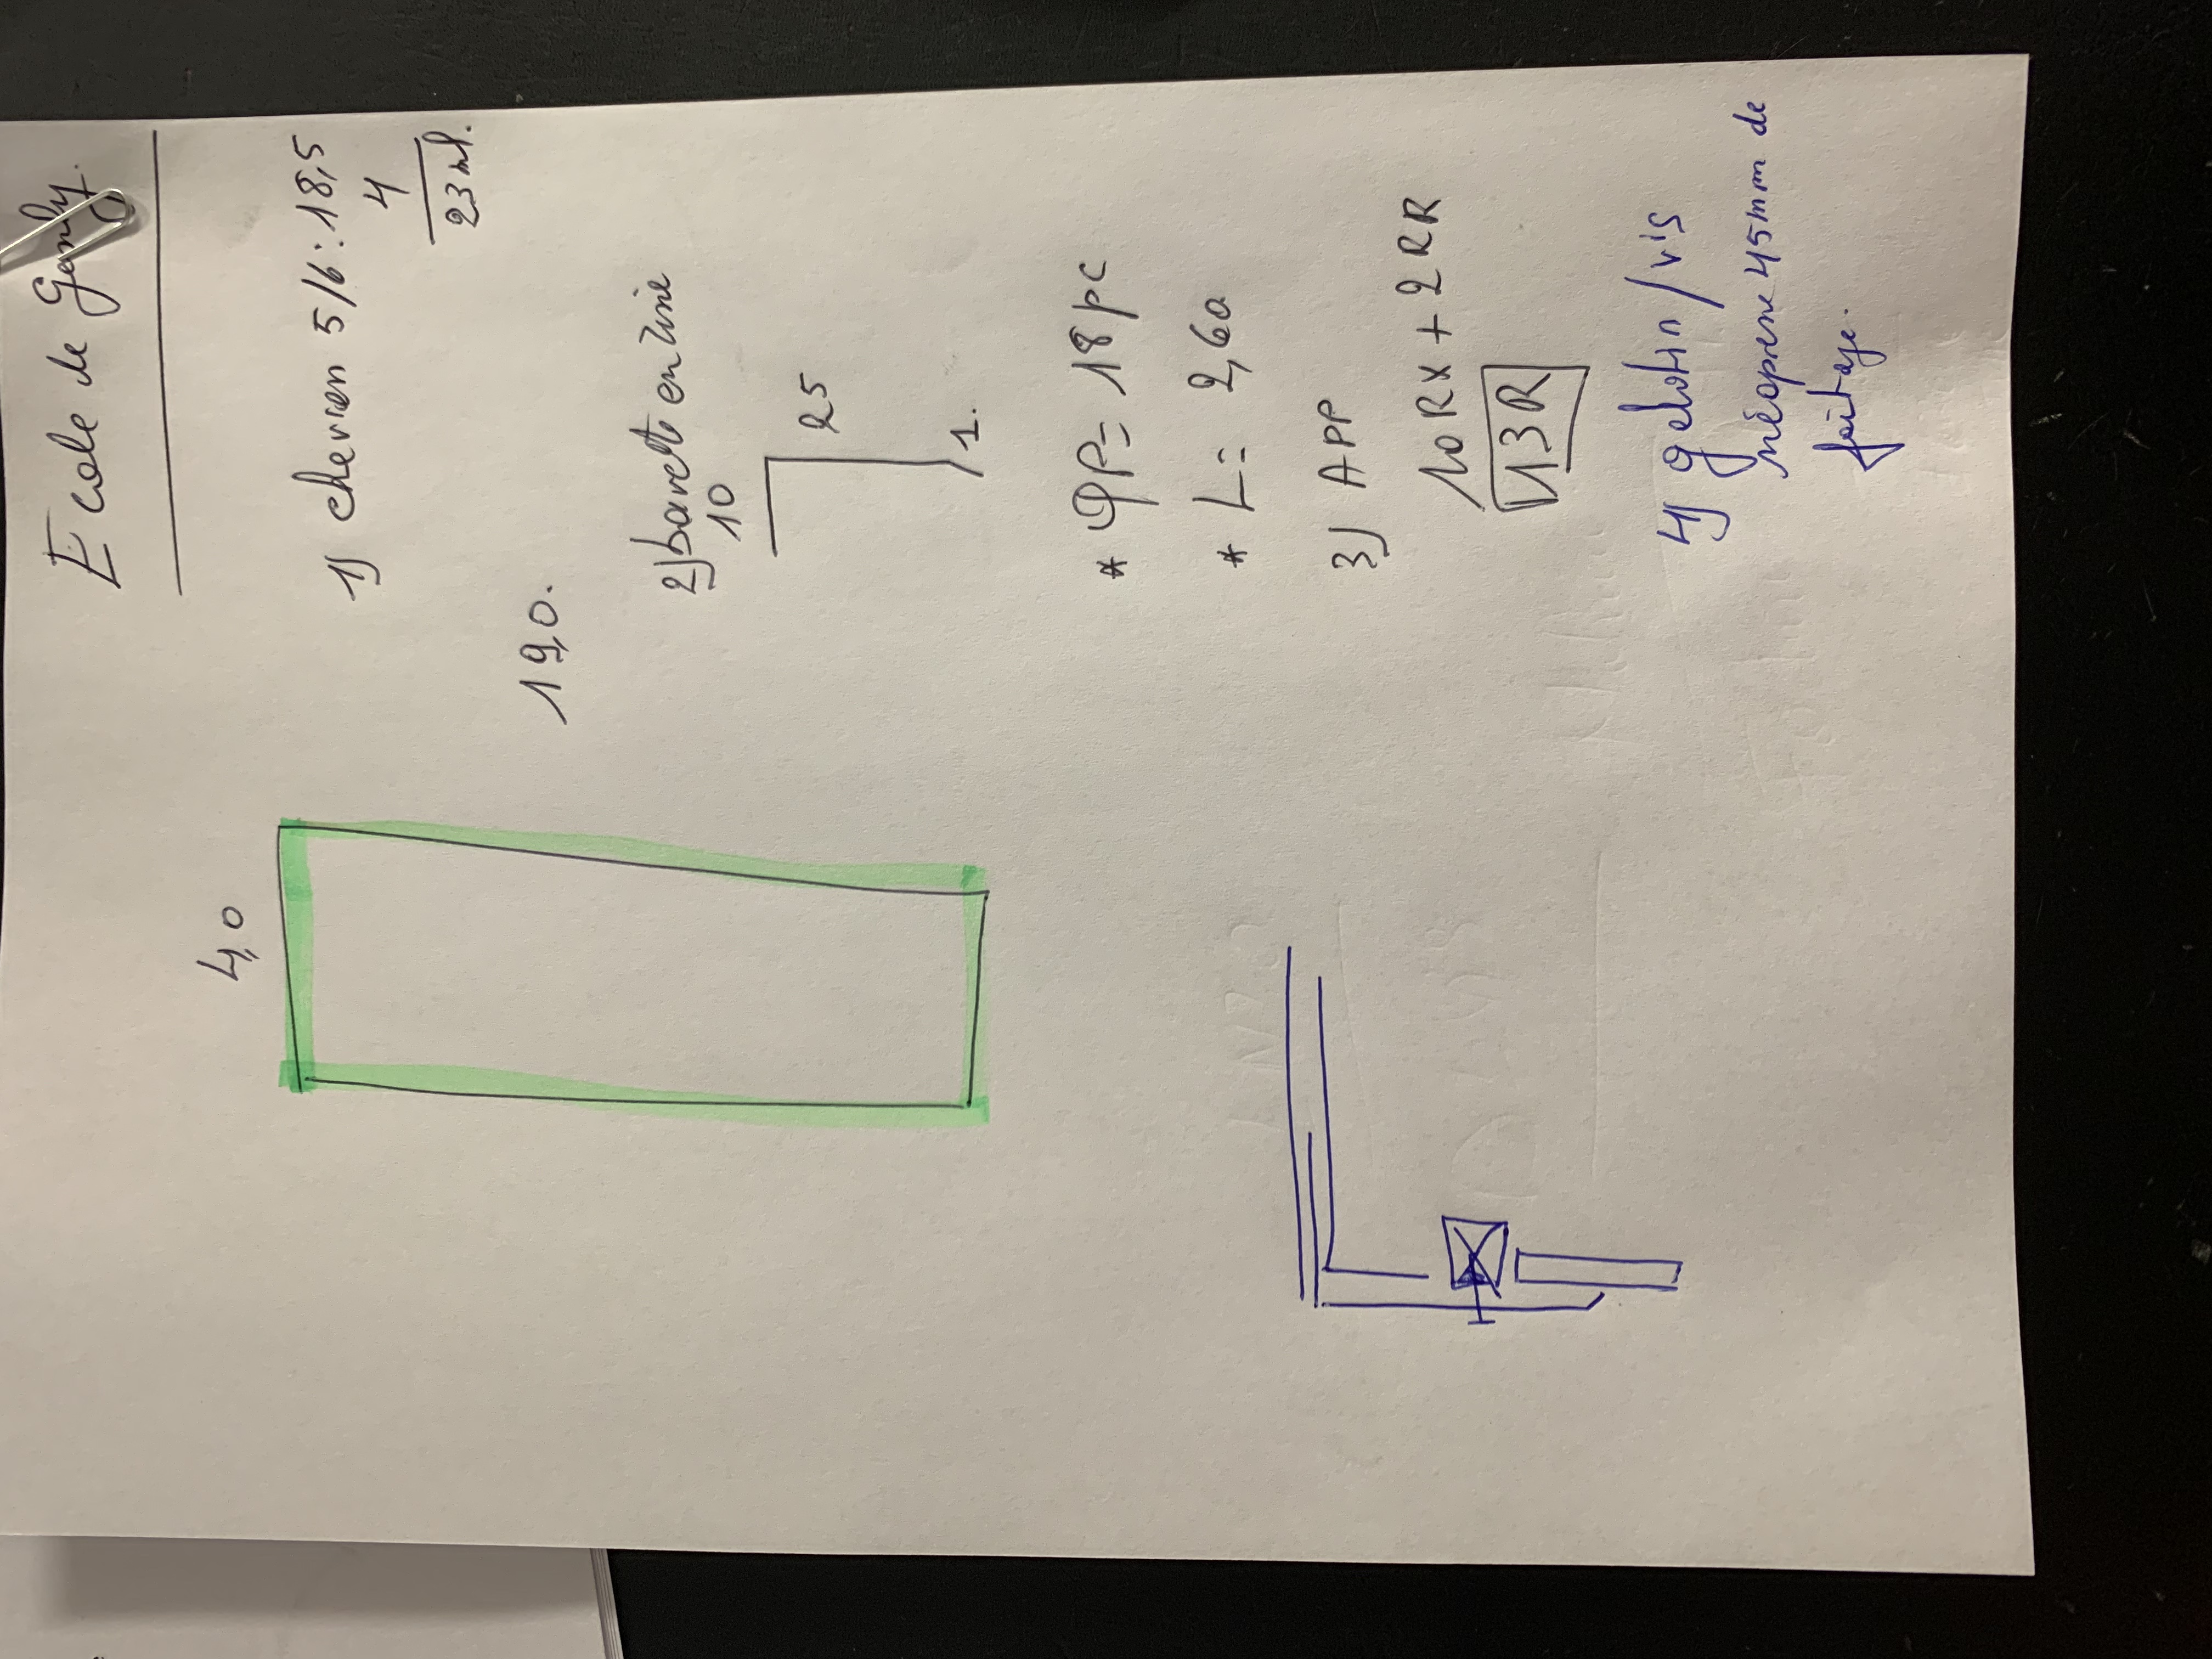 Ecole de Genly.
1) chevron 5/6 : 18,5
4
23 ml.
4,0
19,0.
2) bavette en zinc
10
25
1.
* QP = 18 pc
* L = 2,60
3) APP
10 RX + 2 RR
13 R
4) / vis
néoprene 45mm de
faîtage.